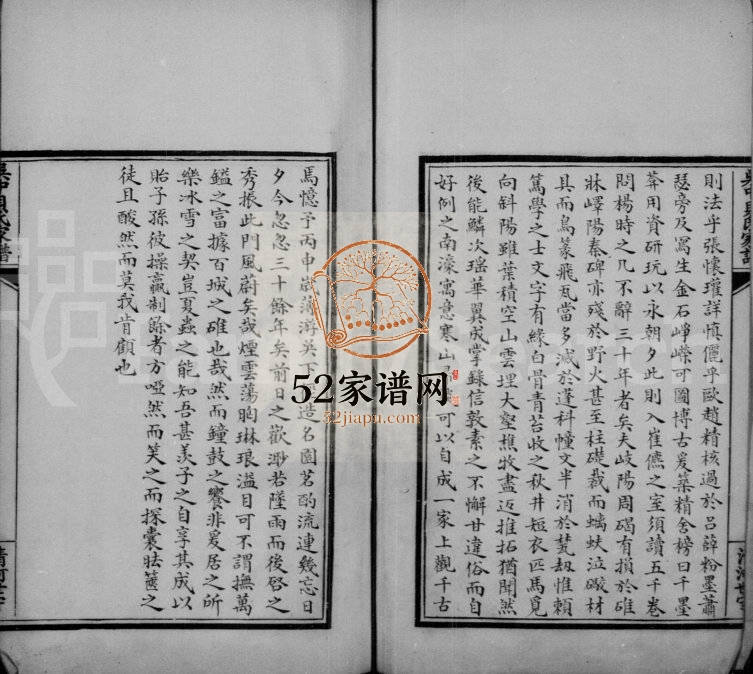 則法乎張懷瓘詳慎儷乎歐趙精核過於呂薛粉墨蕭
瑟旁及寫生金石崢嶸可圖博古爰築精舍榜曰千墨
葊用資研玩以永朝夕此則入崔儦之室須讀五千卷
問楊時之几不辭三十年者矣夫岐陽周碣有損於碓
牀嶧陽秦碑亦殘於野火甚至柱礎裁而螭蚨泣礮材
具而鳥篆飛瓦當多滅於蓬科幢文半消於甃刼惟賴
篤學之士文字有緣白骨青苔收之秋井短衣匹馬覓
向斜陽雖葉積空山雲埋大壑樵牧盡返推拓猶聞然
後能鱗次瑶華翼成掌錄信敦素之不懈甘違俗而自
好例之南濠寓意寒山可以自成一家上觀千古
焉憶予丙申歲薄游吳下造名園茗酌流連幾忘日
夕今忽忽三十餘年矣前日之歡渺若墜雨而後啓之
秀振此門風蔚矣哉煙雲蕩胸琳琅溢目可不謂撫萬
鎰之富據百城之雄也哉然而鐘鼓之饗非爰居之所
樂冰雪之契豈夏蟲之能知吾甚羨子之自享其成以
貽子孫彼操贏制餘者方啞然而笑之而探囊胠篋之
徒且酸然而莫我肯顧也
52家谱网
52jiapu.com